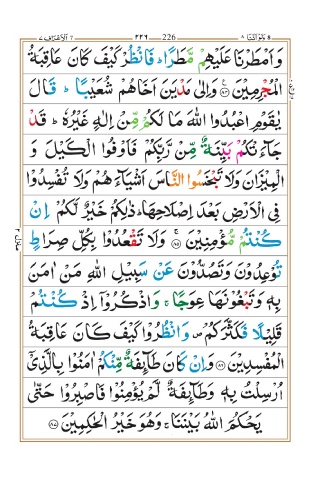 الاعراف ٧ ٢٢٦ 226 ٨
وَاَمْطَرْنَا عَلَيْهِمْ مَّطَرًا ؕ فَانْظُرْ كَيْفَ كَانَ عَاقِبَةُ
الْمُجْرِمِيْنَ ۟ وَاِلٰى مَدْيَنَ اَخَاهُمْ شُعَيْبًا ؕ قَالَ
يٰقَوْمِ اعْبُدُوا اللّٰهَ مَا لَكُمْ مِّنْ اِلٰهٍ غَيْرُهٗ ؕ قَدْ
جَآءَتْكُمْ بَيِّنَةٌ مِّنْ رَّبِّكُمْ فَاَوْفُوا الْكَيْلَ وَ
الْمِيْزَانَ وَلَا تَبْخَسُوا النَّاسَ اَشْيَآءَهُمْ وَلَا تُفْسِدُوْا
فِى الْاَرْضِ بَعْدَ اِصْلَاحِهَا ؕ ذٰلِكُمْ خَيْرٌ لَّكُمْ اِنْ
كُنْتُمْ مُّؤْمِنِيْنَ ۟ۚ ٨٥ وَلَا تَقْعُدُوْا بِكُلِّ صِرَاطٍ
تُوْعِدُوْنَ وَتَصُدُّوْنَ عَنْ سَبِيْلِ اللّٰهِ مَنْ اٰمَنَ
بِهٖ وَتَبْغُوْنَهَا عِوَجًا ۚ وَاذْكُرُوْۤا اِذْ كُنْتُمْ
قَلِيْلًا فَكَثَّرَكُمْ ۪ وَانْظُرُوْا كَيْفَ كَانَ عَاقِبَةُ
الْمُفْسِدِيْنَ ٨٦ وَاِنْ كَانَ طَآئِفَةٌ مِّنْكُمْ اٰمَنُوْا بِالَّذِىْۤ
اُرْسِلْتُ بِهٖ وَطَآئِفَةٌ لَّمْ يُؤْمِنُوْا فَاصْبِرُوْا حَتّٰى
يَحْكُمَ اللّٰهُ بَيْنَنَا ۚ وَهُوَ خَيْرُ الْحٰكِمِيْنَ ٨٧